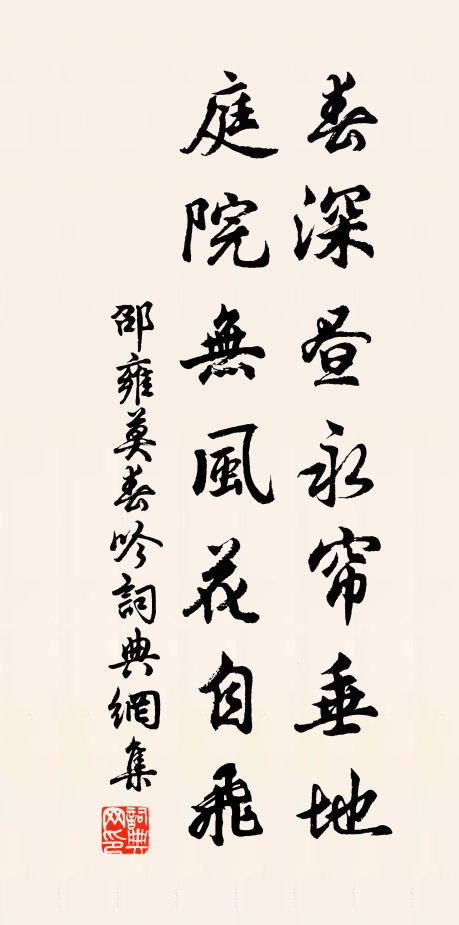 春深昼永帘垂地
庭院無風花自飛
邵雍莫春吟詞典網集
詞典網印